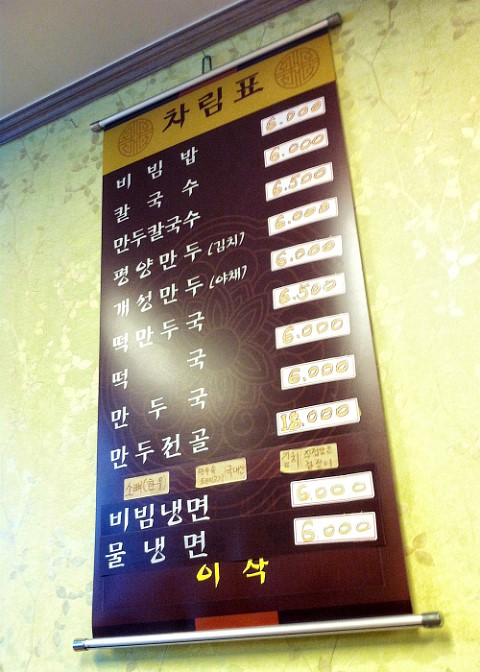 차림표
비빔밥 6.000
칼국수 6.000
만두칼국수 6.500
평양만두(김치) 6.000
개성만두(야채) 6.000
떡만두국 6.500
떡국 6.000
만두국 6.000
만두전골 18.000
소뼈(한우) 국내산 김치
비빔냉면 6.000
물냉면 6.000
이삭